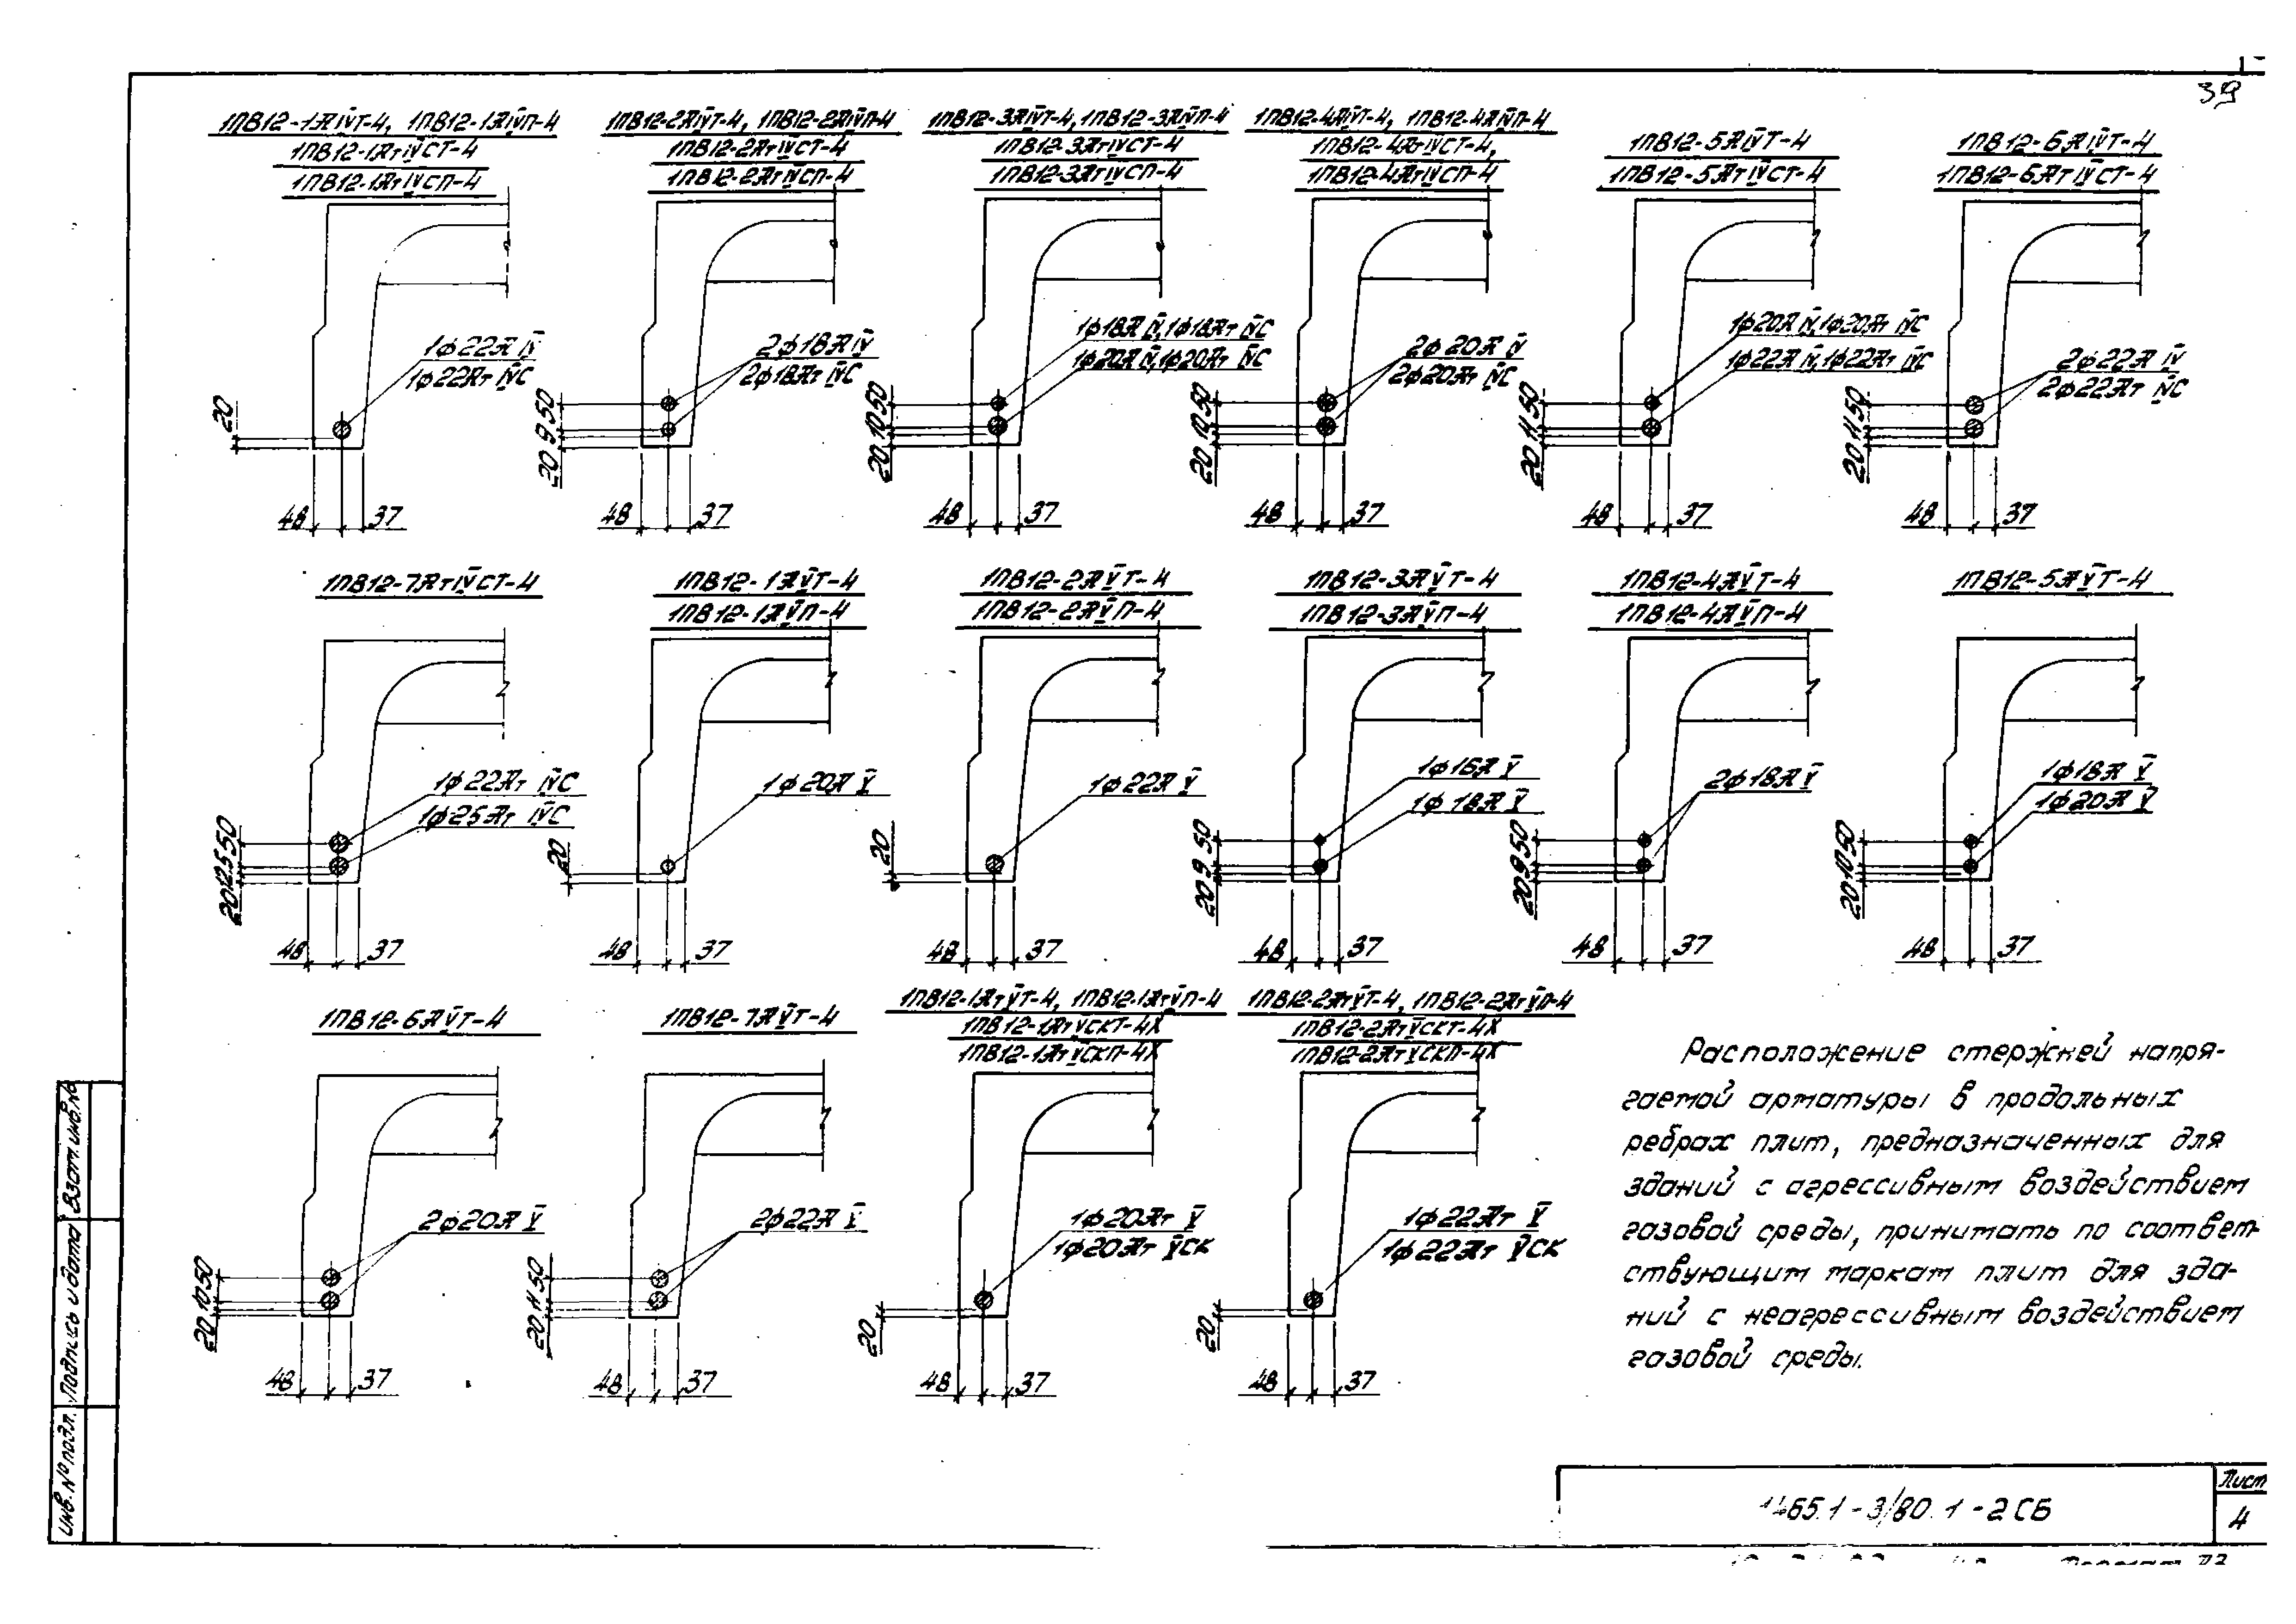 39
1ПВ12-1АIVТ-4, 1ПВ12-1АIVП-4
1ПВ12-1АтIVСТ-4
1ПВ12-1АтIVСП-4
1ф22АIV
1ф22АтIVС
20
48 37
1ПВ12-2АIVТ-4, 1ПВ12-2АIVП-4
1ПВ12-2АтIVСТ-4
1ПВ12-2АтIVСП-4
2ф18АIV
2ф18АтIVС
20 9 50
48 37
1ПВ12-3АIVТ-4, 1ПВ12-3АIVП-4
1ПВ12-3АтIVСТ-4
1ПВ12-3АтIVСП-4
1ф18АIV, 1ф18АтIVС
1ф20АIV, 1ф20АтIVС
20 10 50
48 37
1ПВ12-4АIVТ-4, 1ПВ12-4АIVП-4
1ПВ12-4АтIVСТ-4,
1ПВ12-4АтIVСП-4
2ф20АIV
2ф20АтIVС
20 10 50
48 37
1ПВ12-5АIVТ-4
1ПВ12-5АтIVСТ-4
1ф20АIV, 1ф20АтIVС
1ф22АIV, 1ф22АтIVС
20 11 50
48 37
1ПВ12-6АIVТ-4
1ПВ12-6АтIVСТ-4
2ф22АIV
2ф22АтIVС
20 11 50
48 37
1ПВ12-7АтIVСТ-4
1ф22АтIVС
1ф25АтIVС
20 12,5 50
48 37
1ПВ12-1АVТ-4
1ПВ12-1АVП-4
1ф20АV
20
48 37
1ПВ12-2АVТ-4
1ПВ12-2АVП-4
1ф22АV
20
48 37
1ПВ12-3АVТ-4
1ПВ12-3АVП-4
1ф16АV
1ф18АV
20 9 50
48 37
1ПВ12-4АVТ-4
1ПВ12-4АVП-4
2ф18АV
20 9 50
48 37
1ПВ12-5АVТ-4
1ф18АV
1ф20АV
20 10 50
48 37
1ПВ12-6АVТ-4
2ф20АV
20 10 50
48 37
1ПВ12-7АVТ-4
2ф22АV
20 11 50
48 37
1ПВ12-1АтVТ-4, 1ПВ12-1АтVП-4
1ПВ12-1АтVСКТ-4Х
1ПВ12-1АтVСКП-4Х
1ф20АтV
1ф20АтVСК
20
48 37
1ПВ12-2АтVТ-4, 1ПВ12-2АтVП-4
1ПВ12-2АтVСКТ-4Х
1ПВ12-2АтVСКП-4Х
1ф22АтV
1ф22АтVСК
20
48 37
Расположение стержней напря-
гаемой арматуры в продольных
ребрах плит, предназначенных для
зданий с агрессивным воздействием
газовой среды, принимать по соответ-
ствующим маркам плит для зда-
ний с неагрессивным воздействием
газовой среды.
Инв.№подл. Подпись и дата Взам.инв.№
1.465.1-3/80.1-2СБ
Лист
4